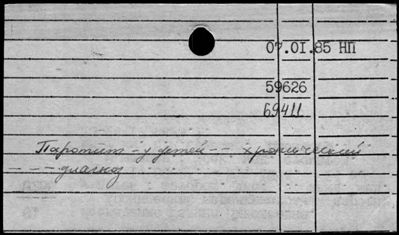 07.01.85 НП
59626
69411
Паротит - у детей -- хронический
- - - диагноз